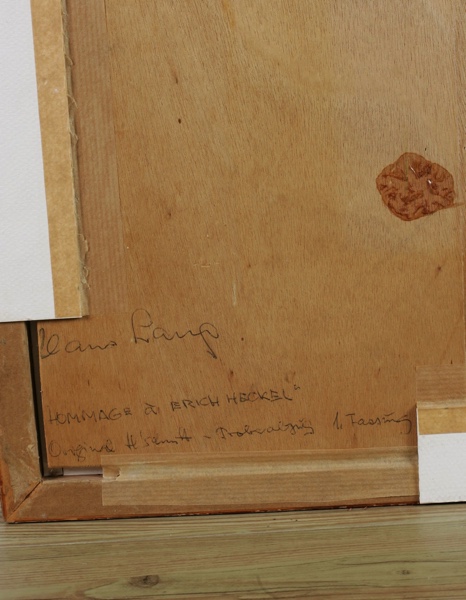 Hans Lang
HOMMAGE à ERICH HECKEL"
Original H'schnitt - Probeabzug 1. Fassung